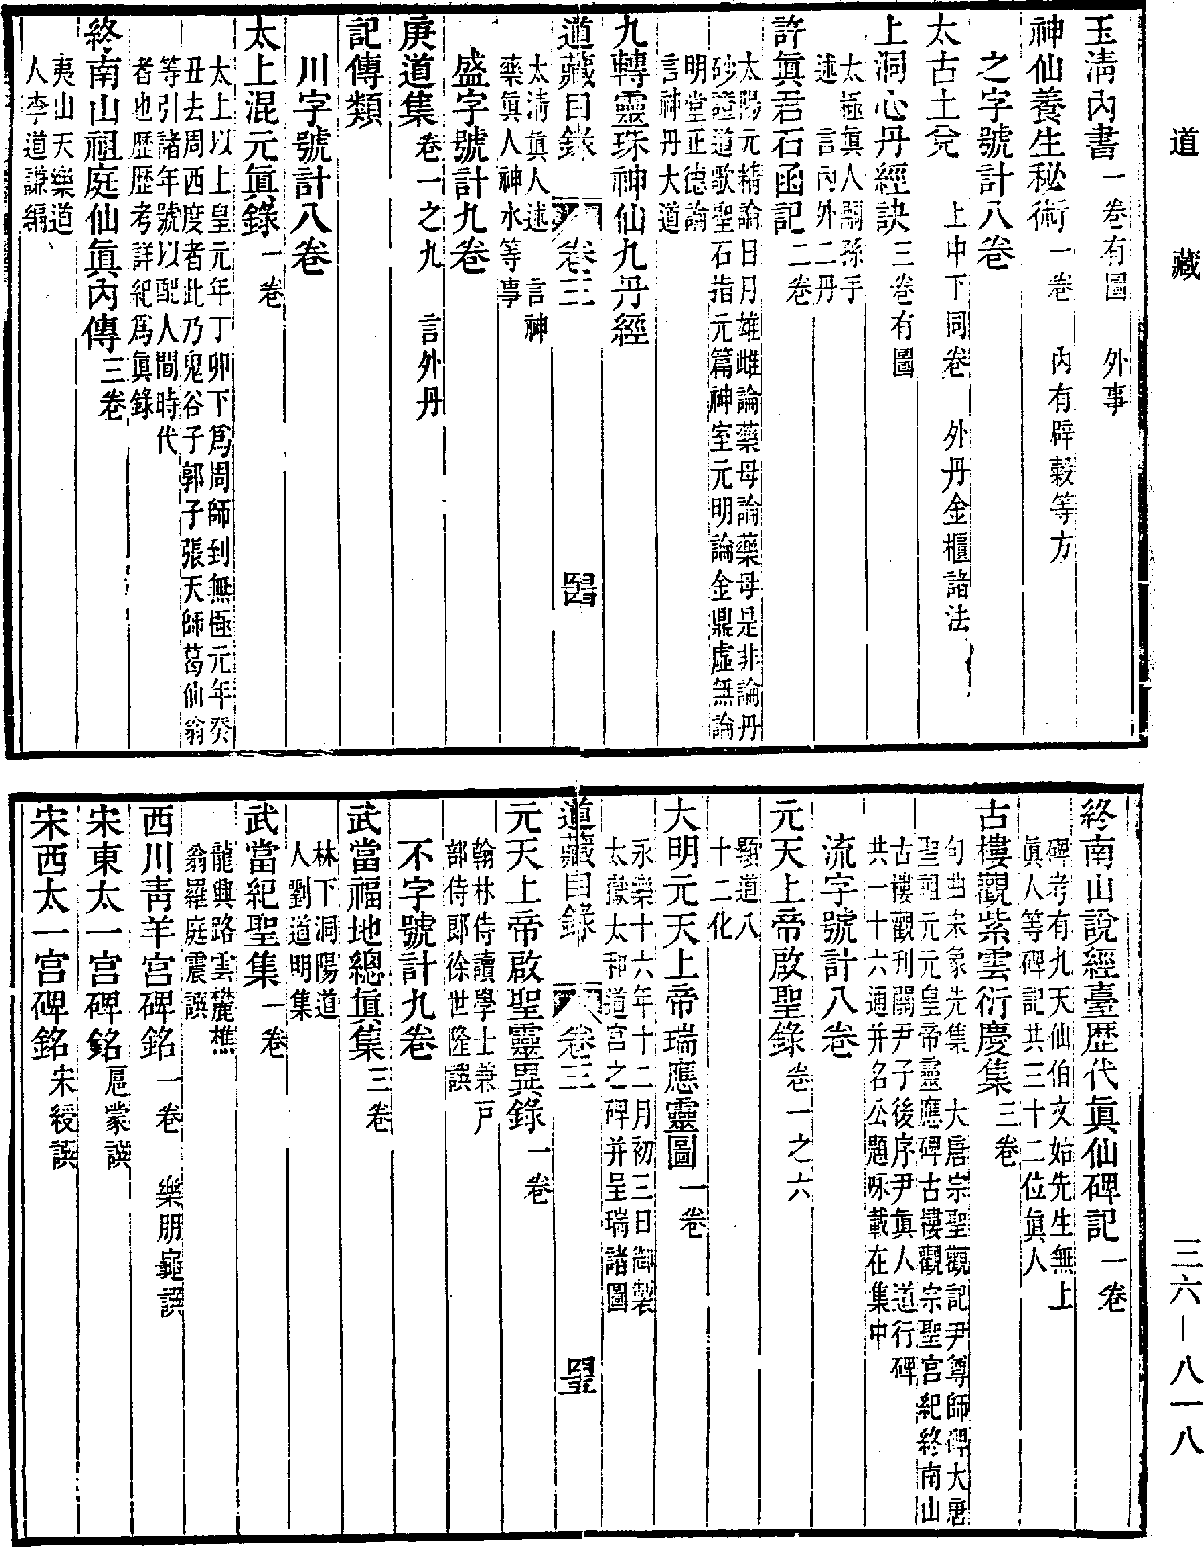 道藏
玉淸內書一卷有圖　外事
神仙養生秘術一卷　內有辟穀等方
之字號計八卷
太古土兌　上中下同卷　外丹金櫃諸法
上洞心丹經訣三卷有圖
太極眞人嗣孫手
述　言內外二丹
許眞君石函記二卷
太陽元精論日月雄雌論藥母論藥母是非論丹
砂證道歌聖石指元篇神室元明論金鼎虛無論
明堂正德論
言神丹大道
九轉靈珠神仙九丹經
太淸眞人述　言神
藥眞人神水等事
道藏目錄　卷三
盛字號計九卷
庚道集卷一之九　言外丹
記傳類
川字號計八卷
太上混元眞錄一卷
太上以上皇元年丁卯下爲周師到無極元年癸
丑去周西度者此乃鬼谷子郭子張天師葛仙翁
等引諸年號以配人間時代
者也歷歷考詳紀爲眞錄
終南山祖庭仙眞內傳三卷
夷山天樂道
人李道謙編
終南山說經臺歷代眞仙碑記一卷
碑考有九天仙伯文始先生無上
眞人等碑記共三十二位眞人
古樓觀紫雲衍慶集三卷
句曲朱象先集　大唐宗聖觀記尹尊師碑大唐
聖祖元元皇帝靈應碑古樓觀宗聖宮紀終南山
古樓觀刊關尹子後序尹眞人道行碑
共一十六通并名公題咏載在集中
流字號計八卷
元天上帝啟聖錄卷一之六
顯道八
十二化
大明元天上帝瑞應靈圖一卷
永樂十六年十二月初三日御製
太嶽太和道宮之碑并呈瑞諸圖
道藏目錄　卷三
元天上帝啟聖靈異錄一卷
翰林侍讀學士兼戸
部侍郎徐世隆譔
不字號計九卷
武當福地總眞集三卷
林下洞陽道
人劉道明集
武當紀聖集一卷
龍興路雲麓樵
翁羅庭震譔
西川靑羊宮碑銘一卷　樂朋龜譔
宋東太一宮碑銘扈蒙譔
宋西太一宮碑銘宋綬譔
三六—八一八